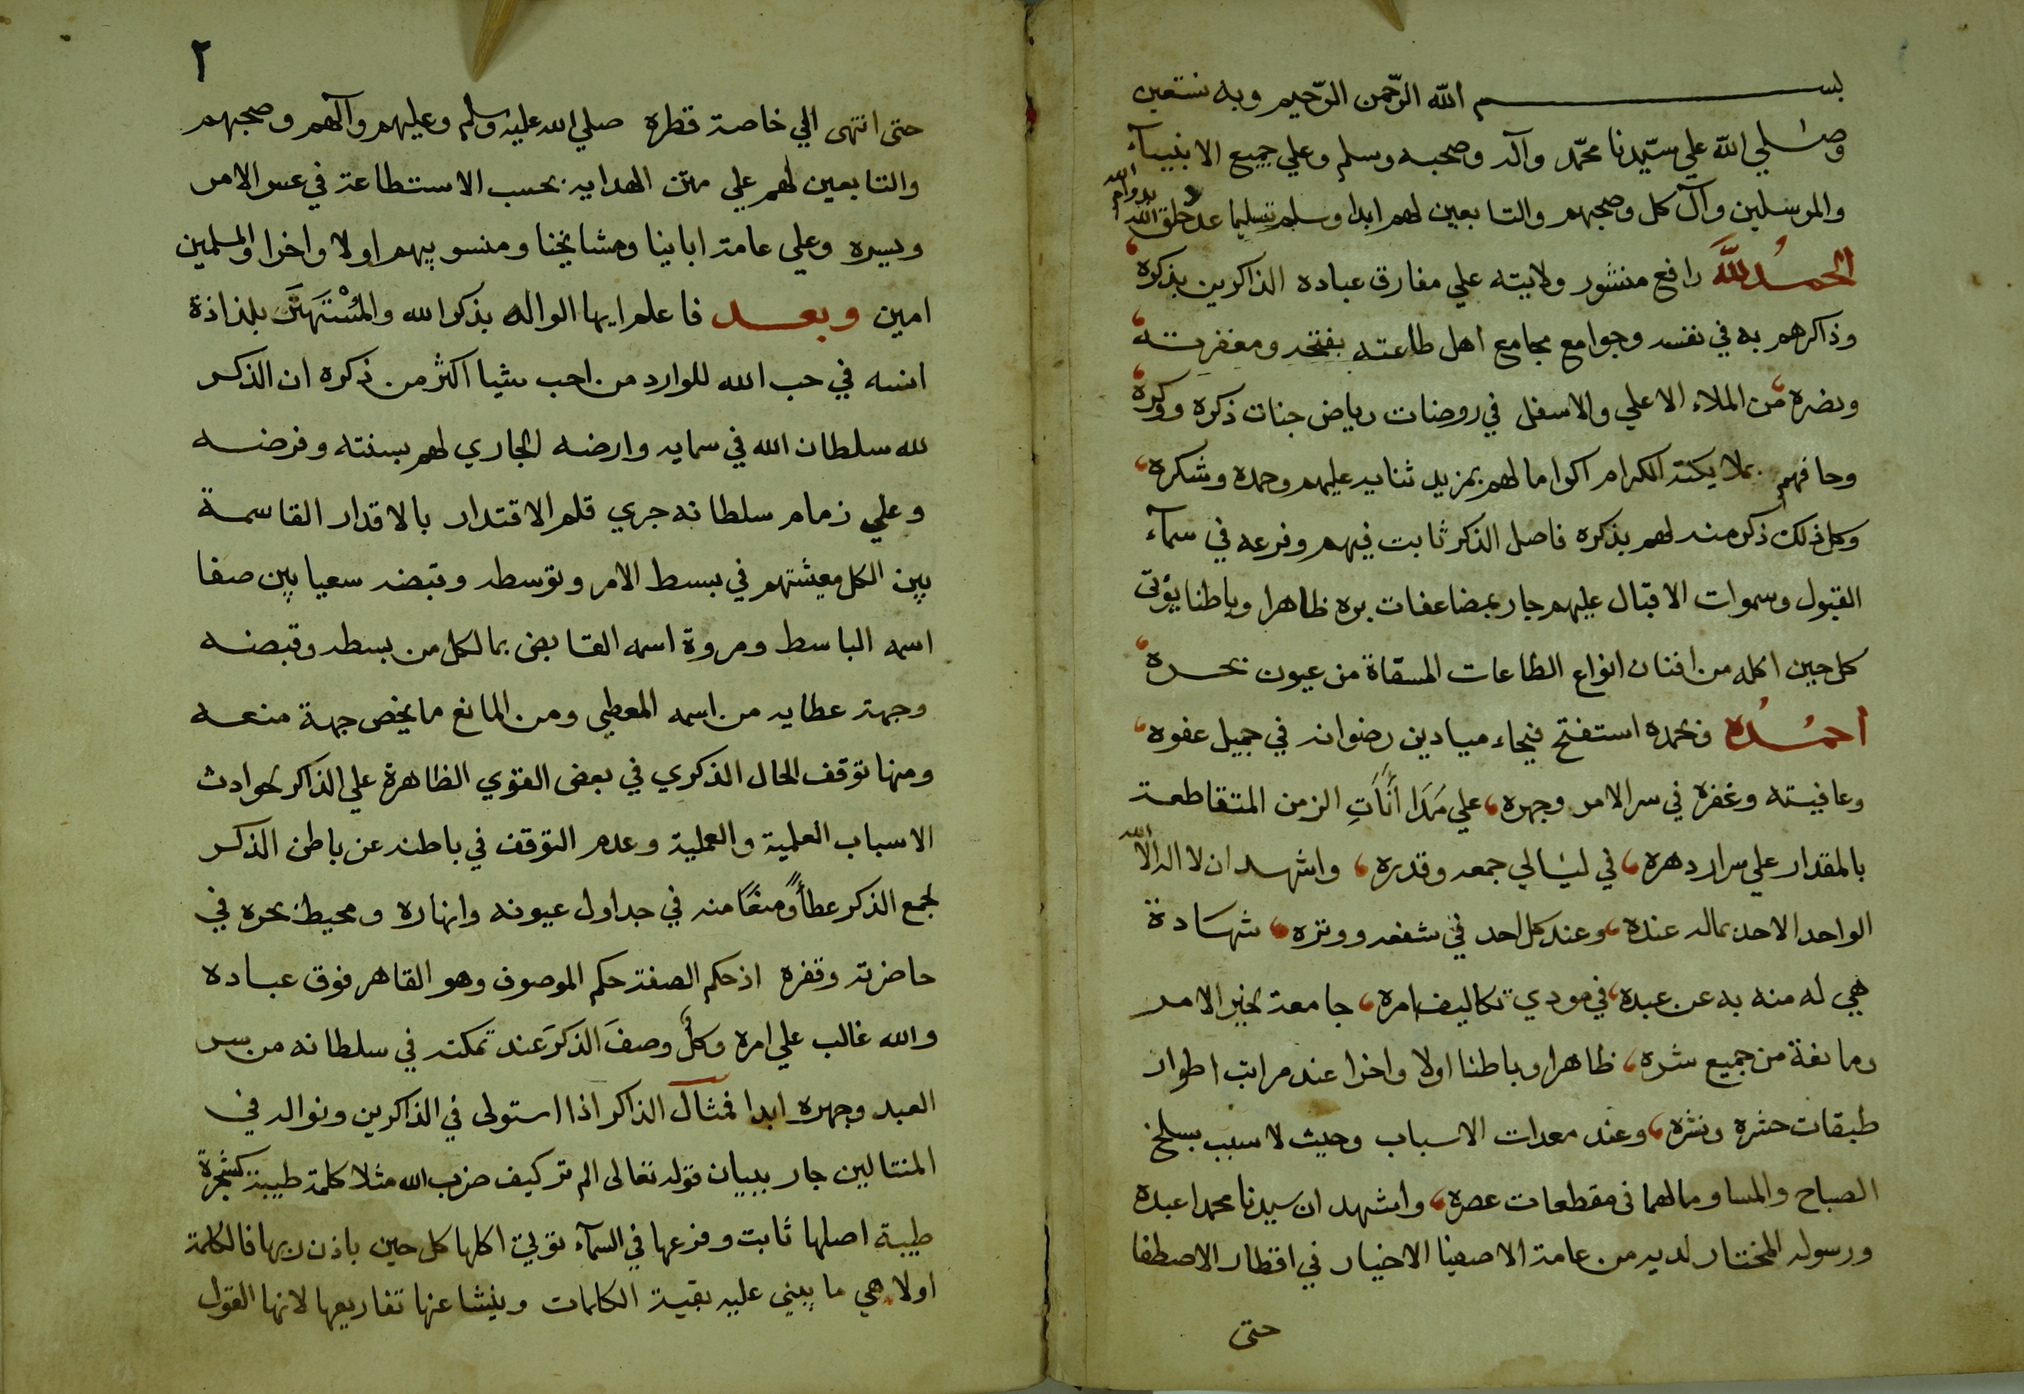 بسم الله الرّحمن الرّحيم وبه نستعين
وصلي الله علي سيّدنا محمّد وآله وصحبه وسلم وعلي جميع الانبياء
والمرسلين وآل كل وصحبهم والتابعين لهم ابدا وسلم تسليما عدد خلق الله بدوام الله
الحمد لله رافع منشور ولايته علي مفارق عباده الذاكرين بذكره
وذاكرهم به في نفسه وجوامع مجامع اهل طاعته بفتحه ومغفرته
ونضره من الملاء الاعلي والاسفل في روضات رياض جنات ذكره ووكره
وحافهم بملايكته الكرام اكراما لهم بمزيد ثنايه عليهم وحمده وشكره
وكل ذلك ذكر منه لهم بذكره فاصل الذكر ثابت فيهم وفرعه في سمآء
القبول وسموات الاقبال عليهم جار بمضاعفات بره ظاهرا وباطنا يؤتى
كل حين اكله من افنان انواع الطاعات المسقاة من عيون بحره
احمده وبحمده استفتح فيحاء ميادين رضوانه في جميل عفوه
وعافيته وغفره في سر الامر وجهره علي مَدَا أنَأتِ الزمن المتقاطعة
بالمقدار علي سرار دهره في ليالي جمعه وقدره واشهد ان لا اله الا الله
الواحد الاحد بماله عنده وعند كل احد في شفعه ووتره شهادة
هي له منه به عن عبده في مودي تكاليف امره جامعة لخير الامر
ومانعة من جميع شره ظاهرا وباطنا اولا واخرا عند مراتب اطوار
طبقات حشره ونشره وعند معدات الاسباب وحيث لا سبب بسلخ
الصباح والمسا ومالهما فى مقطعات عصره واشهد ان سيدنا محمدا عبده
ورسوله المختار لديه من عامة الاصفيا الاخيار في اقطار الاصطفا
حتى
٢
حتى انتهى الي خاصة قطره صلي الله عليه وسلم وعليهم وآلهم وصحبهم
والتابعين لهم علي متن الهدايه بحسب الاستطاعة في عسر الامر
ويسره وعلي عامة اباينا ومشايخنا ومنسوبيهم اولا واخرا والمسلمين
امين وبعد فاعلم ايها الواله بذكر الله والمُسْتَهتَر بلذاذة
انسه في حب الله للوارد من احب شيا اكثر من ذكره ان الذكر
لله سلطان الله في سمايه وارضه الجاري لهم بسنته وفرضه
وعلي زمام سلطانه جري قلم الاقتدار بالاقدار القاسمة
بين الكل معيشتهم في بسط الامر وتوسطه وقبضه سعيا بين صفا
اسمه الباسط ومروة اسمه القابض بما لكل من بسطه وقبضه
وجهة عطايه من اسمه المعطي ومن المانع ما يخص جهة منعه
ومنها توقف الحال الذكري في بعض القوي الظاهرة علي الذاكر لحوادث
الاسباب العلمية والعملية وعدم التوقف في باطنه عن باطن الذكر
لجمع الذكر عطأً ومنعًا منه في جداول عيونه وانهاره ومحيط بحره في
حاضرته وقفره اذ حكم الصفة حكم الموصوف وهو القاهر فوق عباده
والله غالب علي امره وكلٌ وصفَ الذكرَ عند تمكنه في سلطانه من سر
العبد وجهره ابدا فمثال الذاكر اذا استولى في الذاكرين ونواله في
المنتالين جار ببيان قوله تعالى الم تر كيف ضرب الله مثلا كلمة طيبة كشجرة
طيبة اصلها ثابت وفرعها في السمآء تؤتي اكلها كل حين باذن ربها فالكلمة
اولا هي ما يبني عليه بقية الكلمات وينشا عنها تفاريعها لانها القول